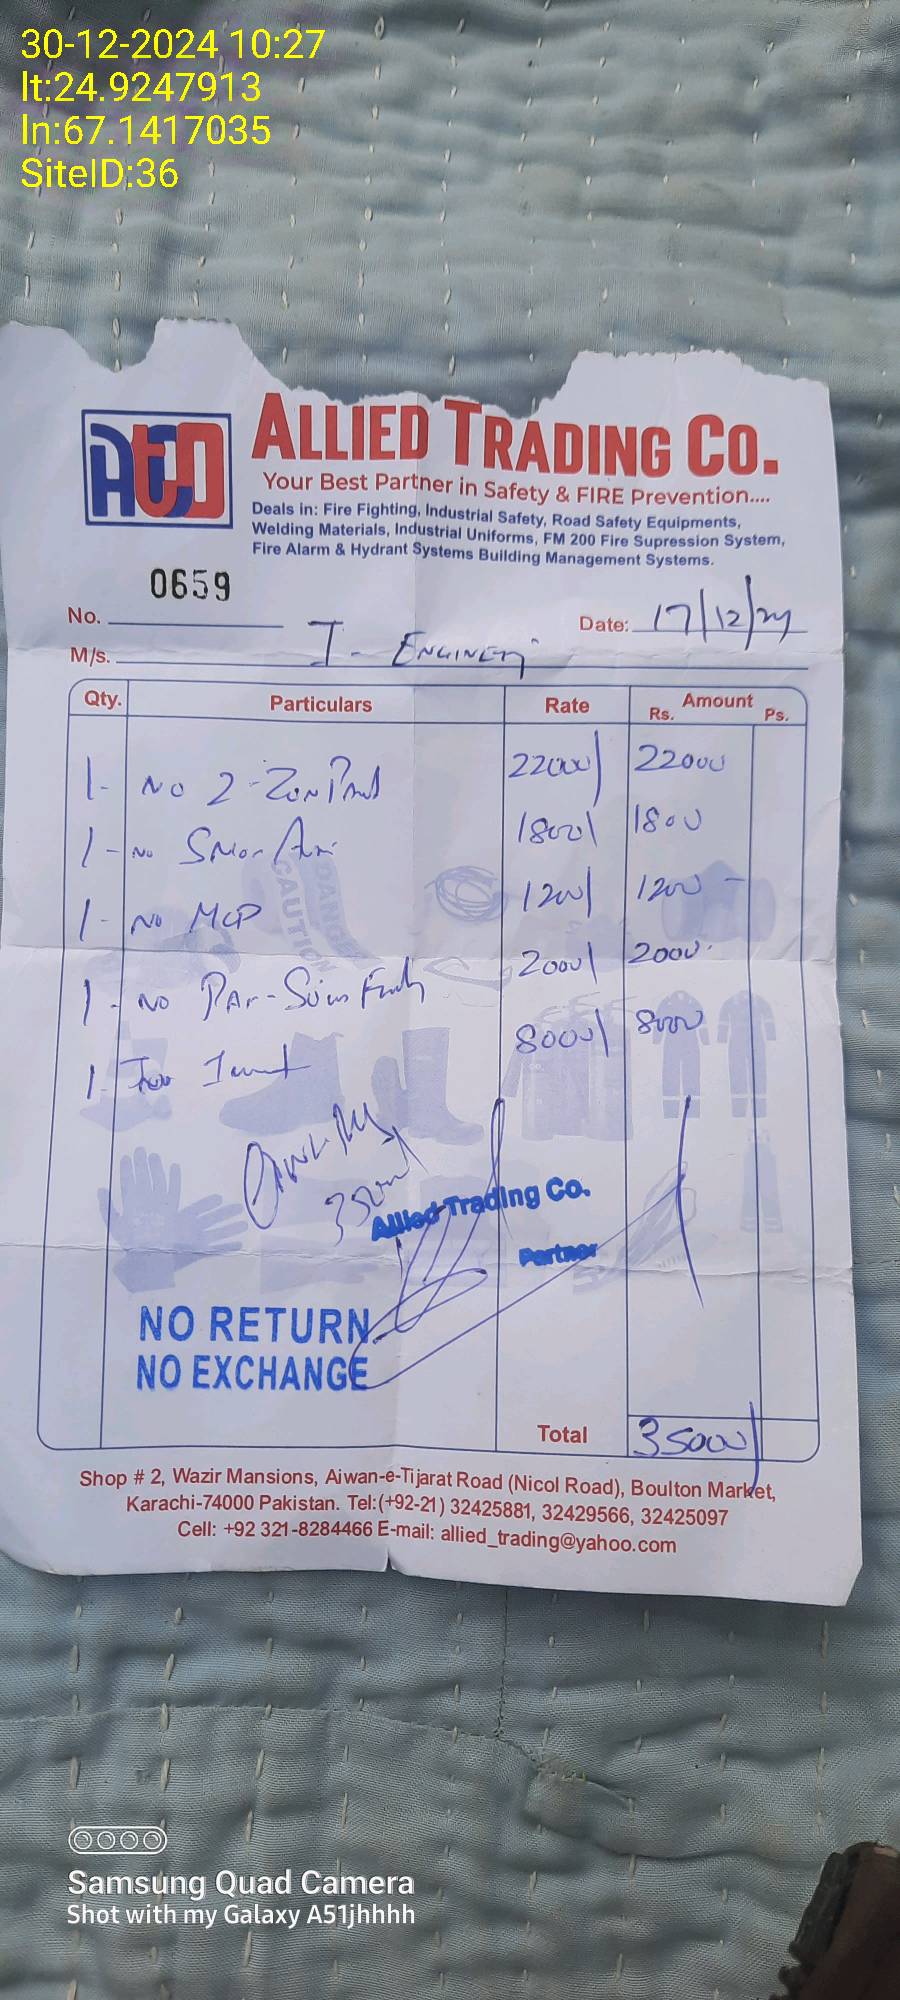 30-12-2024 10:27
lt:24.9247913
ln:67.1417035
SiteID:36
ATCO
ALLIED TRADING CO.
Your Best Partner in Safety & FIRE Prevention....
Deals in: Fire Fighting, Industrial Safety, Road Safety Equipments,
Welding Materials, Industrial Uniforms, FM 200 Fire Supression System,
Fire Alarm & Hydrant Systems Building Management Systems.
No. 0659
Date: 17/12/24
M/s. I-
Qty. Particulars Rate Amount
Rs. Ps.
1- No 2-Zon 22000/ 22000
1- No 1800/ 1800
1- No MCP 1200/ 1200 -
1- No 2000/ 2000
1- 8000/ 8000
35000/
CAUTION
DANGER
Allied Trading Co.
Partner
NO RETURN
NO EXCHANGE
Total 35000/
Shop # 2, Wazir Mansions, Aiwan-e-Tijarat Road (Nicol Road), Boulton Market,
Karachi-74000 Pakistan. Tel:(+92-21) 32425881, 32429566, 32425097
Cell: +92 321-8284466 E-mail: allied_trading@yahoo.com
Samsung Quad Camera
Shot with my Galaxy A51jhhhh